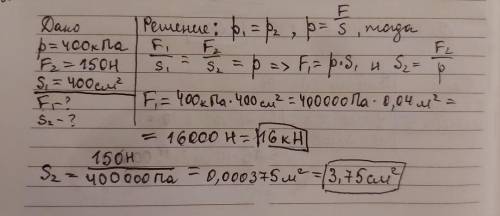 Дано
p=400кПа
F₂=150Н
S₁=400см²
F₁-?
S₂-?
Решение: p₁=p₂, p=F/S, тогда
F₁/S₁=F₂/S₂=p=>F₁=p·S₁ и S₂=F₂/p
F₁=400кПа·400см²=400000Па·0,04м²=
=16000Н=16кН
S₂=150Н/400000Па=0,000375м²=3,75см²